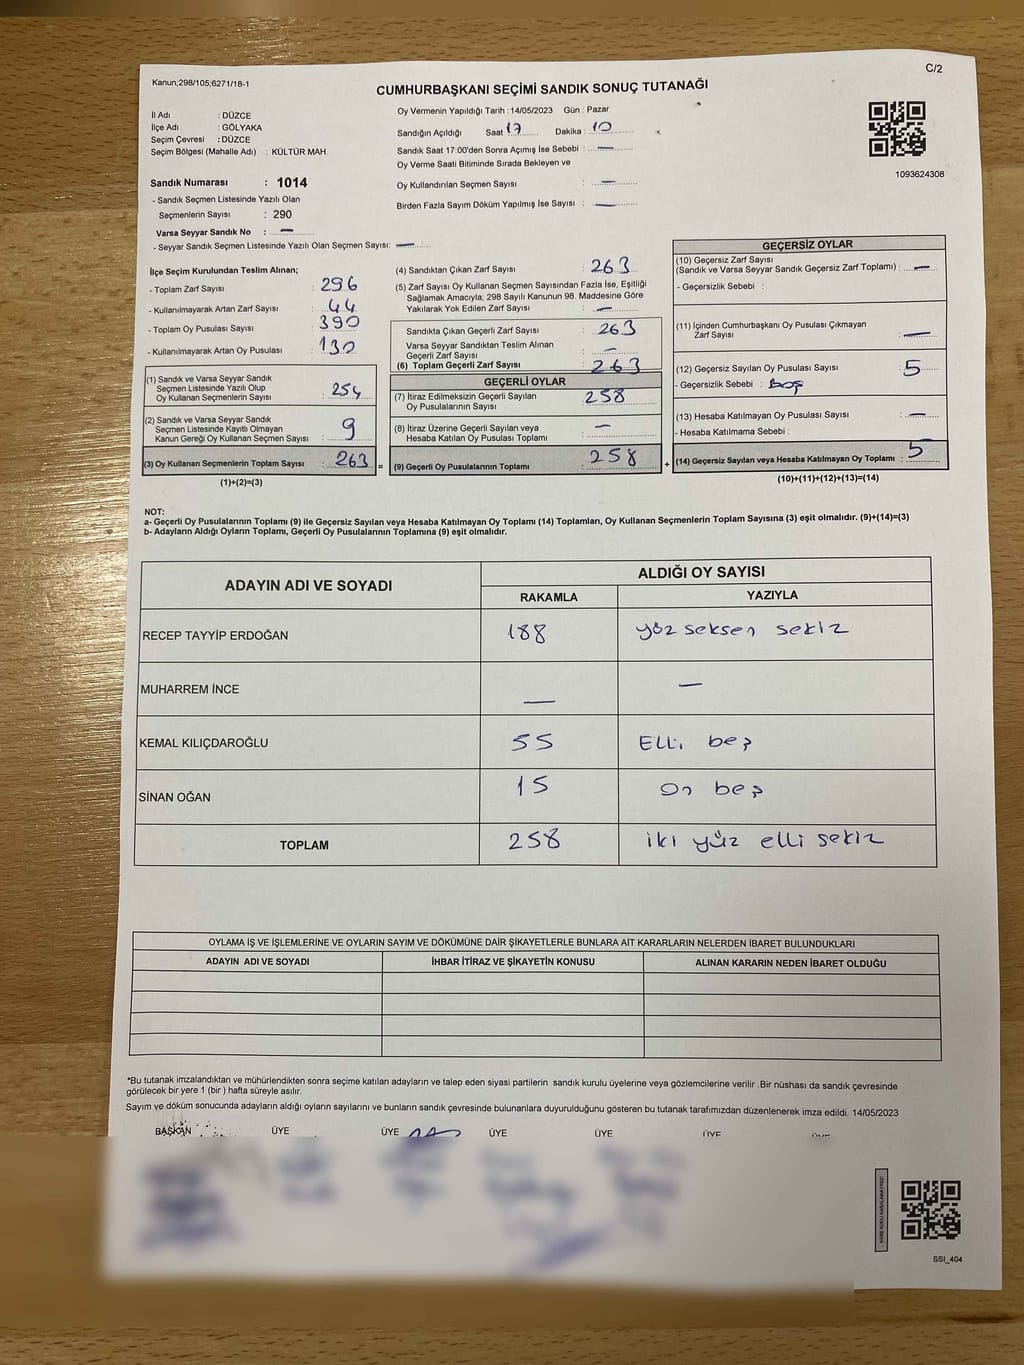 Kanun;298/105;6271/18-1
C/2
CUMHURBAŞKANI SEÇİMİ SANDIK SONUÇ TUTANAĞI
İl Adı : DÜZCE
İlçe Adı : GÖLYAKA
Seçim Çevresi : DÜZCE
Seçim Bölgesi (Mahalle Adı) : KÜLTÜR MAH.
Oy Vermenin Yapıldığı Tarih : 14/05/2023 Gün : Pazar
Sandığın Açıldığı Saat 17 Dakika : 10
Sandık Saat 17:00'den Sonra Açımış İse Sebebi : —
Oy Verme Saati Bitiminde Sırada Bekleyen ve
Oy Kullandırılan Seçmen Sayısı : —
Birden Fazla Sayım Döküm Yapılmış İse Sayısı : —
1093624308
Sandık Numarası : 1014
- Sandık Seçmen Listesinde Yazılı Olan
Seçmenlerin Sayısı : 290
Varsa Seyyar Sandık No : —
- Seyyar Sandık Seçmen Listesinde Yazılı Olan Seçmen Sayısı: —
İlçe Seçim Kurulundan Teslim Alınan;
- Toplam Zarf Sayısı : 296
- Kullanılmayarak Artan Zarf Sayısı : 44
- Toplam Oy Pusulası Sayısı : 390
- Kullanılmayarak Artan Oy Pusulası : 130
(1) Sandık ve Varsa Seyyar Sandık
Seçmen Listesinde Yazılı Olup
Oy Kullanan Seçmenlerin Sayısı : 254
(2) Sandık ve Varsa Seyyar Sandık
Seçmen Listesinde Kayıtlı Olmayan
Kanun Gereği Oy Kullanan Seçmen Sayısı : 9
(3) Oy Kullanan Seçmenlerin Toplam Sayısı : 263 =
(1)+(2)=(3)
(4) Sandıktan Çıkan Zarf Sayısı : 263
(5) Zarf Sayısı Oy Kullanan Seçmen Sayısından Fazla İse, Eşitliği
Sağlamak Amacıyla; 298 Sayılı Kanunun 98. Maddesine Göre
Yakılarak Yok Edilen Zarf Sayısı : —
Sandıkta Çıkan Geçerli Zarf Sayısı : 263
Varsa Seyyar Sandıktan Teslim Alınan
Geçerli Zarf Sayısı : —
(6) Toplam Geçerli Zarf Sayısı : 263
GEÇERLİ OYLAR
(7) İtiraz Edilmeksizin Geçerli Sayılan
Oy Pusulalarının Sayısı : 258
(8) İtiraz Üzerine Geçerli Sayılan veya
Hesaba Katılan Oy Pusulası Toplamı : —
(9) Geçerli Oy Pusulalarının Toplamı : 258 +
GEÇERSİZ OYLAR
(10) Geçersiz Zarf Sayısı
(Sandık ve Varsa Seyyar Sandık Geçersiz Zarf Toplamı) : —
- Geçersizlik Sebebi :
(11) İçinden Cumhurbaşkanı Oy Pusulası Çıkmayan
Zarf Sayısı : —
(12) Geçersiz Sayılan Oy Pusulası Sayısı : 5
- Geçersizlik Sebebi : Boş
(13) Hesaba Katılmayan Oy Pusulası Sayısı : —
- Hesaba Katılmama Sebebi :
(14) Geçersiz Sayılan veya Hesaba Katılmayan Oy Toplamı : 5
(10)+(11)+(12)+(13)=(14)
NOT:
a- Geçerli Oy Pusulalarının Toplamı (9) ile Geçersiz Sayılan veya Hesaba Katılmayan Oy Toplamı (14) Toplamları, Oy Kullanan Seçmenlerin Toplam Sayısına (3) eşit olmalıdır. (9)+(14)=(3)
b- Adayların Aldığı Oyların Toplamı, Geçerli Oy Pusulalarının Toplamına (9) eşit olmalıdır.
ADAYIN ADI VE SOYADI
ALDIĞI OY SAYISI
RAKAMLA YAZIYLA
RECEP TAYYİP ERDOĞAN 188 yüz seksen sekiz
MUHARREM İNCE — —
KEMAL KILIÇDAROĞLU 55 Elli beş
SİNAN OĞAN 15 On beş
TOPLAM 258 iki yüz elli sekiz
OYLAMA İŞ VE İŞLEMLERİNE VE OYLARIN SAYIM VE DÖKÜMÜNE DAİR ŞİKAYETLERLE BUNLARA AİT KARARLARIN NELERDEN İBARET BULUNDUKLARI
ADAYIN ADI VE SOYADI İHBAR İTİRAZ VE ŞİKAYETİN KONUSU ALINAN KARARIN NEDEN İBARET OLDUĞU
*Bu tutanak imzalandıktan ve mühürlendikten sonra seçime katılan adayların ve talep eden siyasi partilerin sandık kurulu üyelerine veya gözlemcilerine verilir .Bir nüshası da sandık çevresinde
görülecek bir yere 1 (bir ) hafta süreyle asılır.
Sayım ve döküm sonucunda adayların aldığı oyların sayılarını ve bunların sandık çevresinde bulunanlara duyurulduğunu gösteren bu tutanak tarafımızdan düzenlenerek imza edildi. 14/05/2023
BAŞKAN ÜYE ÜYE ÜYE ÜYE ÜYE ÜYE
SSI_404